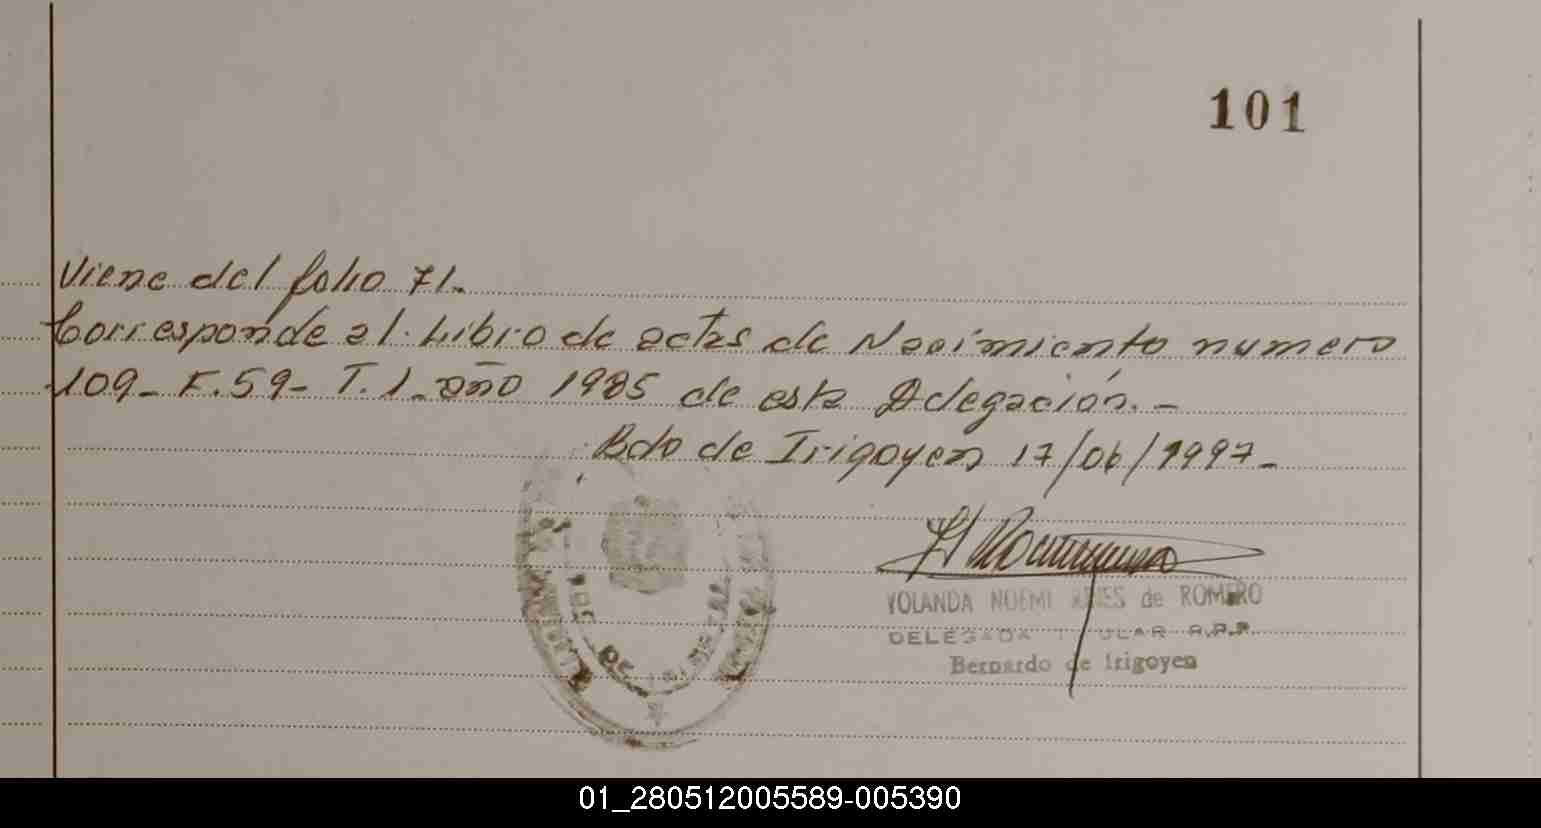 101
Viene del folio 71.
Corresponde al Libro de actas de Nacimiento numero
109- F.59- T.1. año 1985 de esta Delegación.-
Bdo de Irigoyen 17/06/1997-
YOLANDA NOEMI de ROMERO
DELEGADA TITULAR R.P.P.
Bernardo de Irigoyen
01_280512005589-005390